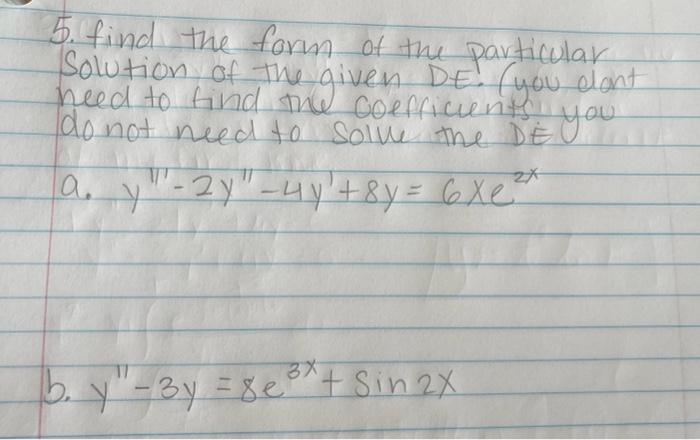 5. find the form of the particular
Solution of the given DE. (you dont
need to find the coefficients, you
do not need to solve the DE
a. y''' - 2y'' - 4y' + 8y = 6xe^2x
b. y'' - 3y = 8e^3x + Sin 2x